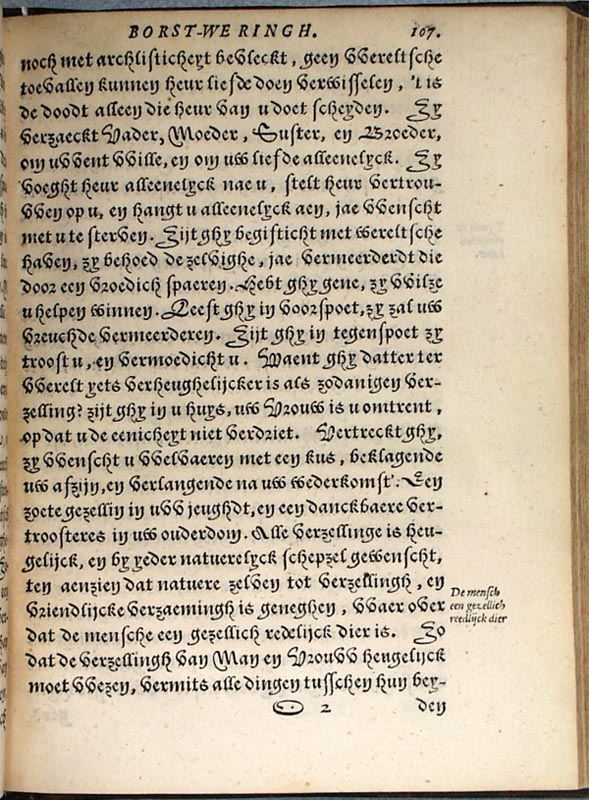 BORST-WERINGH. 107.
noch met archlisticheyt bevleckt, geen VVereltsche
toevallen kunnen heur liefde doen verwisselen, 't is
de doodt alleen die heur van u doet scheyden. Zy
verzaeckt Vader, Moeder, Suster, en Broeder,
om uVVent VVille, en om uw liefde alleenelyck. Zy
voeght heur alleenelyck nae u, stelt heur vertrou-
VVen op u, en hangt u alleenelyck aen, jae VVenscht
met u te sterven. Zijt ghy begifticht met wereltsche
haven, zy behoed dezelvighe, jae vermeerderdt die
door een vroedich spaeren. Hebt ghy gene, zy VVilze
u helpen winnen. Leest ghy in voorspoet, zy zal uw
vreuchde vermeerderen. Zijt ghy in tegenspoet zy
troost u, en vermoedicht u. Waent ghy datter ter
VVerelt yets verheughelijcker is als zodanigen ver-
zelling? zijt ghy in u huys, uw Vrouw is u omtrent,
op dat u de eenicheyt niet verdriet. Vertreckt ghy,
zy VVenscht u VVelvaeren met een kus, beklagende
uw afzijn, en verlangende na uw wederkomst. Een
zoete gezellin in uVV jeughdt, en een danckbaere ver-
troosteres in uw ouderdom. Alle verzellinge is heu-
gelijck, en by yeder natuerelyck schepzel gewenscht,
ten aenzien dat natuere zelven tot verzellingh, en
vriendlijcke verzaemingh is geneghen, VVaer over
dat de mensche een gezellich redelijck dier is. Zo
dat de verzellingh van Man en VrouVV heugelijck
moet VVezen, vermits alle dingen tusschen hun bey-
2 den
De mensch
een gezellich
reedlijck dier